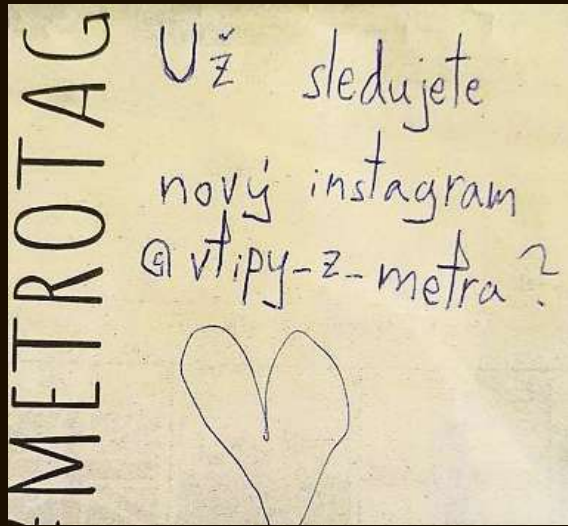 METROTAG
Už sledujete
nový instagram
@vtipy-z-metra?